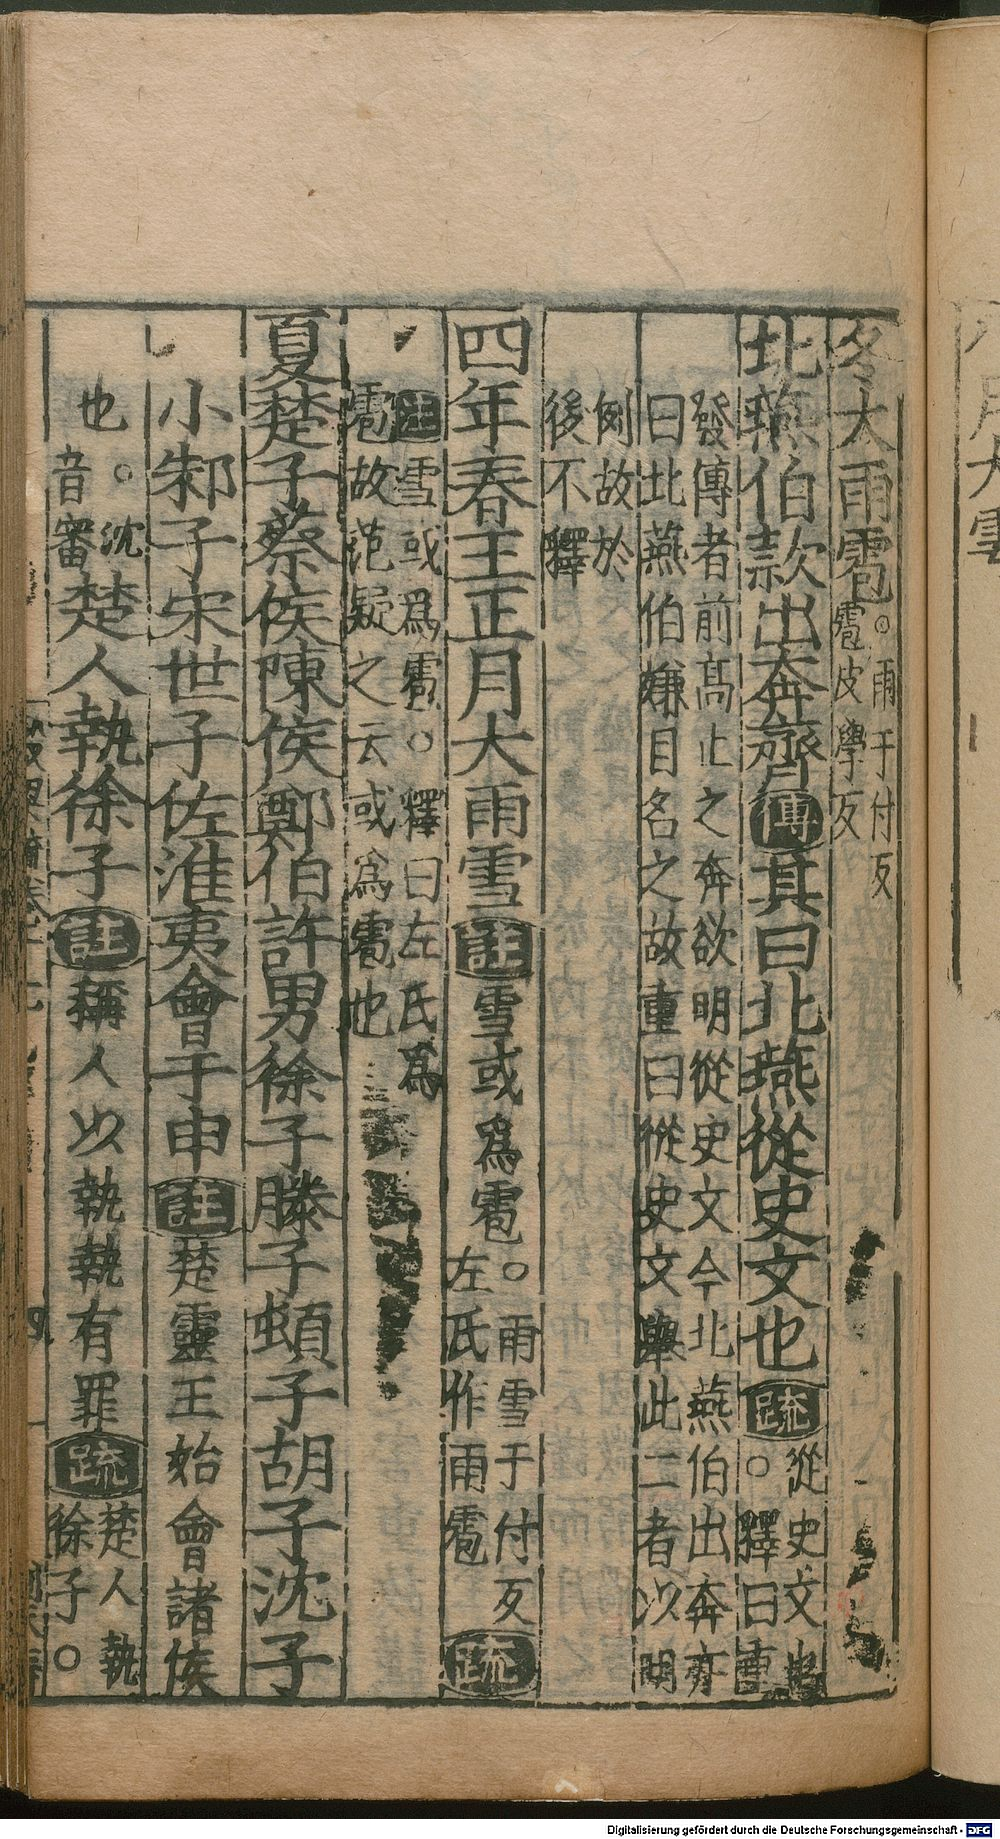 冬大雨雹○雨于付反雹皮學反
北燕伯欵出奔齊傳其曰北燕從史文也疏從史文也○釋曰重
發傳者前髙止之奔欲明從史文今北燕伯出奔亦
曰北燕伯嫌目名之故重曰從史文舉此二者以明
例故於
後不釋
四年春王正月大雨雪註雪或爲雹○雨雪于付反左氏作雨雹疏
註雪或爲雹○釋曰左氏爲
雹故范疑之云或爲雹也
夏楚子蔡侯陳侯鄭伯許男徐子滕子頓子胡子沈子
小邾子宋世子佐淮夷會于申註楚靈王始會諸侯
也○沈音審楚人執徐子註稱人以執執有罪疏楚人執徐子○
Digitalisierung gefördert durch die Deutsche Forschungsgemeinschaft - DFG